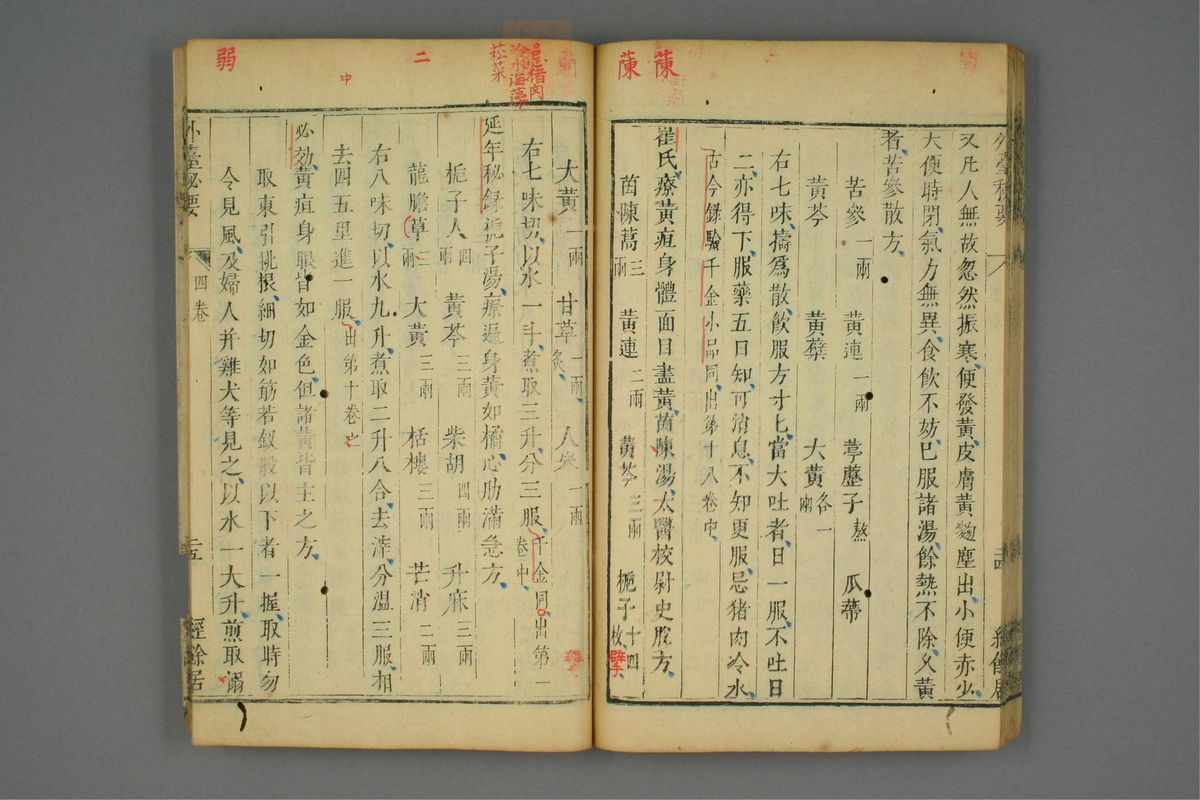 陳 陳
外臺秘要
又凡人無故忽然振寒便發黃皮膚黃麴塵出小便赤少
大便時閉氣力無異食飲不妨已服諸湯餘熱不除久黃
者苦參散方
苦參一兩 黃連一兩 葶藶子熬 瓜蒂
黃芩 黃蘗 大黃各一兩
右七味擣爲散飲服方寸匕當大吐者日一服不吐日
二亦得下服藥五日知可消息不知更服忌猪肉冷水
古今錄驗千金小品同出第十八卷中
崔氏療黃疸身體面目盡黃茵陳湯太醫校尉史脫方
茵陳蒿三兩 黃連二兩 黃芩三兩 梔子十四枚
擘
忌猪肉
冷水海藻
菘菜
二
中
弱
大黃一兩 甘草一兩炙 人參一兩
右七味切以水一斗煮取三升分三服千金同出第一卷中
延年秘錄梔子湯療遍身黃如橘心肋滿急方
梔子人四兩 黃芩三兩 柴胡四兩 升麻三兩
龍膽草三兩 大黃三兩 栝樓三兩 芒消二兩
右八味切以水九升煮取二升八合去滓分溫三服相
去四五里進一服出第十卷
必效黃疸身眼皆如金色但諸黃皆主之方
取東引桃根細切如筯若釵股以下者一握取時勿
令見風及婦人并雞犬等見之以水一大升煎取溺
外臺秘要 四卷 二五 經餘居